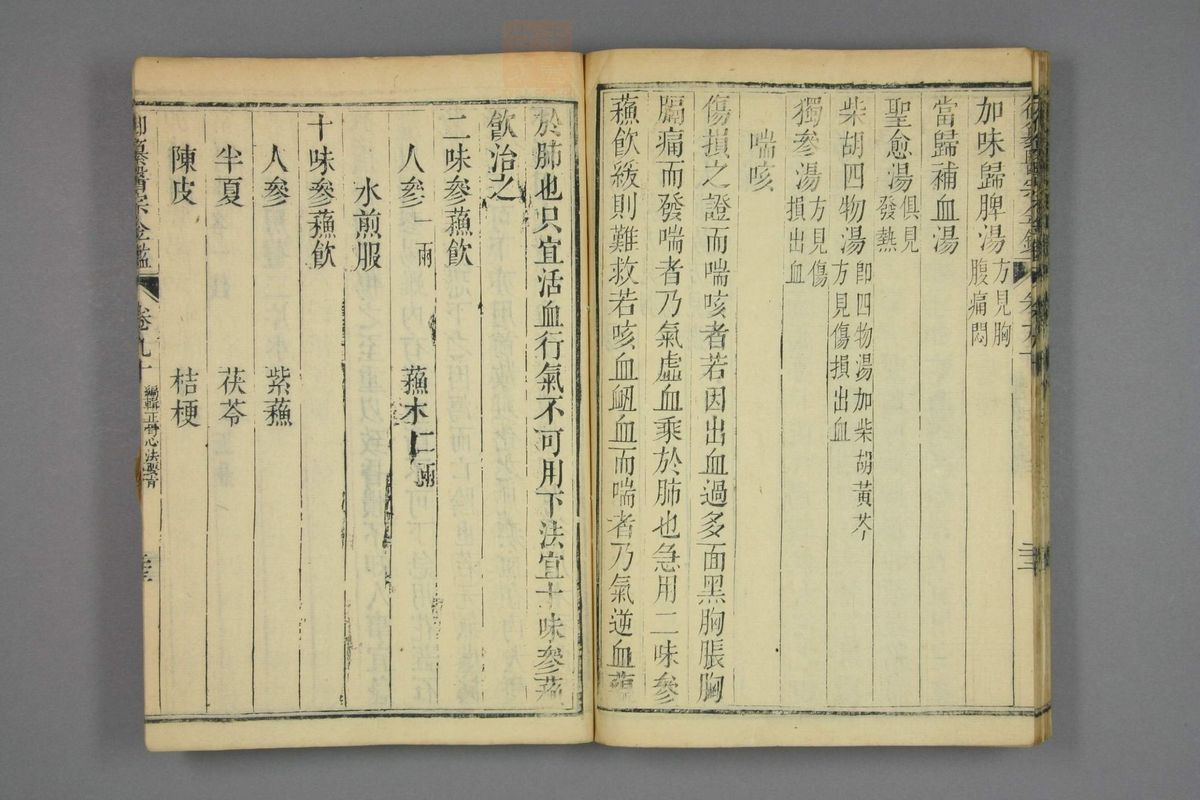 加味歸脾湯方見胸腹痛悶
當歸補血湯
聖愈湯俱見發熱
柴胡四物湯卽四物湯加柴胡黃芩方見傷損出血
獨參湯方見傷損出血
喘咳
傷損之證而喘咳者若因出血過多面黑胸脹胸
膈痛而發喘者乃氣虛血乘於肺也急用二味參
蘓飮緩則難救若咳血衂血而喘者乃氣逆血蘊
於肺也只宜活血行氣不可用下法宜十味參蘓
飮治之
二味參蘓飮
人參一兩 蘓木二兩
水煎服
十味參蘓飮
人參 紫蘓
半夏 茯苓
陳皮 桔梗
御纂醫宗金鑑 卷九十 編輯正骨心法要旨 二十三